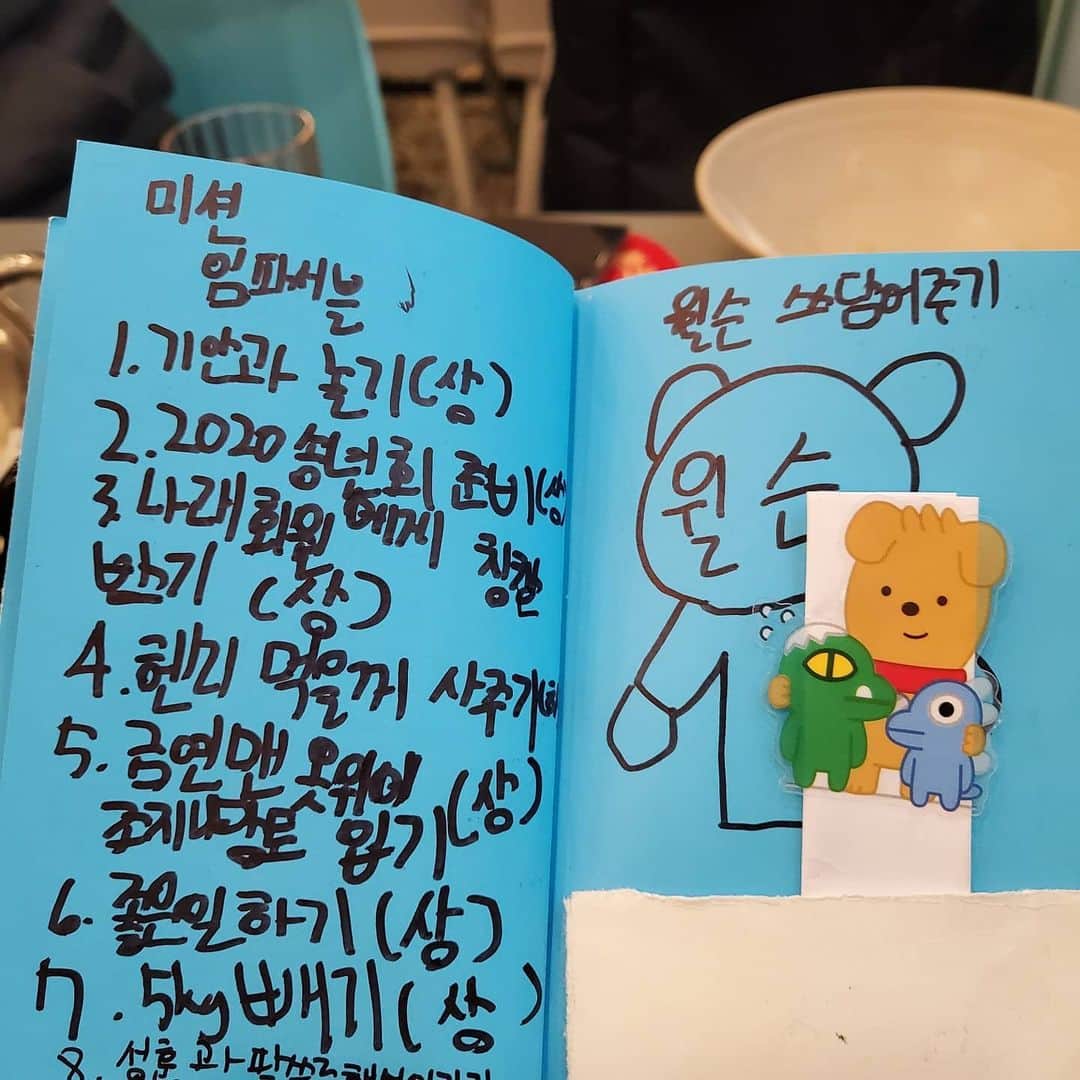 미션
임파서블
1. 기안과 놀기(상)
2. 2020 송년회 준비(상
3. 나래회원에게 칭찬
받기 (상)
4. 헨리 먹을꺼 사주기(
5. 금연맨 스웨이
조지나 당토 입기(상)
6. 좋은일하기(상)
7. 5kg 빼기(상)
8. 성훈과
월순 쓰담어주기
월 순